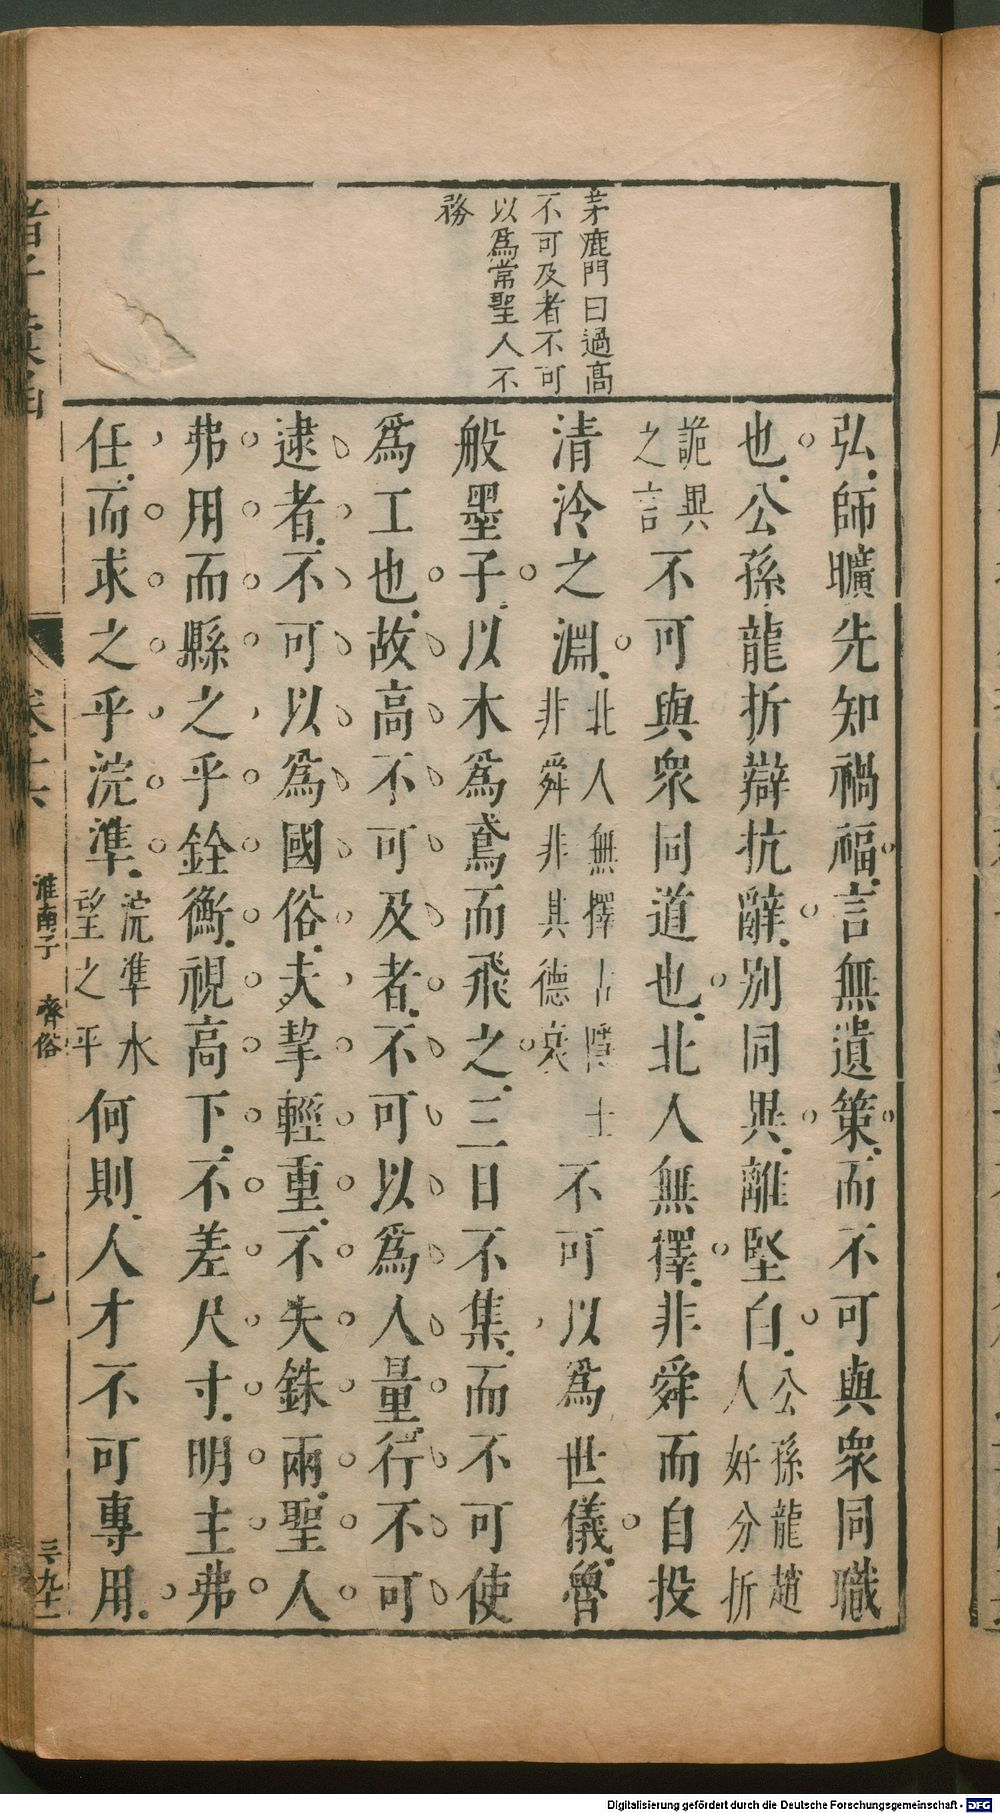 茅鹿門曰過高
不可及者不可
以爲常聖人不
務
弘師曠先知禍福言無遺策而不可與衆同職
也公孫龍折辯抗辭別同異離堅白公孫龍趙人好分折
詭異之言不可與衆同道也北人無擇非舜而自投
清泠之淵北人無擇古隱士非舜非其德衰不可以爲世儀魯
般墨子以木爲鳶而飛之三日不集而不可使
爲工也故高不可及者不可以爲人量行不可
逮者不可以爲國俗夫挈輕重不失銖兩聖人
弗用而縣之乎銓衡視高下不差尺寸明主弗
任而求之乎浣準浣準水望之平何則人才不可專用
淮南子 齊俗
Digitalisierung gefördert durch die Deutsche Forschungsgemeinschaft - DFG